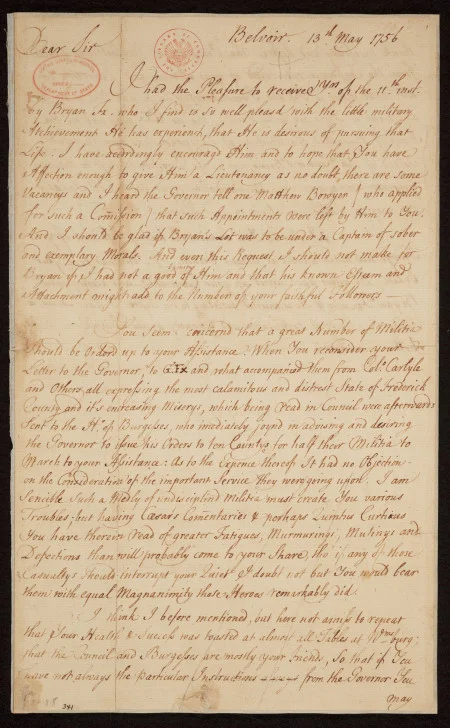 Belvoir 13th May 1756
Dear Sir
I had the Pleasure to receive Yrs of the 11th inst
by Bryan Fx. who I find is so well pleasd with the little military
Atchievement He has experienct, that He is desirous of pursuing that
Life. I have accordingly encouragd Him and to hope that You have
Affection enough to give Him a Lieutenancy as no doubt there are some
Vacancys and I heard the Governor tell one Matthew Bowyer / who applied
for such a Comission / that such Appointments were left by Him to You.
And I should be glad if Bryan's Lot was to be under a Captain of sober
and exemplary Morals. And even this Request I should not make for
Bryan if I had not a good of Him and that his known Esteem and
Attachment might add to the Number of your faithful Followers
You Seem concernd that a great Number of Militia
Should be Orderd up to your Assistance: When You reconsider your
Letter to the Governor, to and what accompanied them from Colo. Carlyle
and Others, all expressing the most calamitous and distrest State of Frederick
County and it's encreasing Miserys, which being read in Council were afterwards
Sent to the Ho. of Burgesses, who imediately joynd in advising and desiring
the Governor to issue his Orders to ten Countys for half their Militia to
March to your Assistance: As to the Expence thereof It had no Objection
on the Consideration of the important Service They were going upon. I am
Sencible Such a Medly of undisciplind Militia must create You various
Troubles, but having Cæsar's Comentaries & perhaps Quintus Curtius
You have therein read of greater Fatigues, Murmurings, Mutinys and
Defections than will probably come to your Share, tho' if any of those
Casualtys Should interrupt your Quiet I doubt not but You would bear
them with equal Magnanimity those Heroes remarkably did.
I think I before mentioned, but here not amiss to repeat
that Your Health & Success was toasted at almost all Tables at Wmsburg:
that the Council and Burgesses are mostly your Friends, So that if You
have not always the particular Instructions from the Governor You
may
341